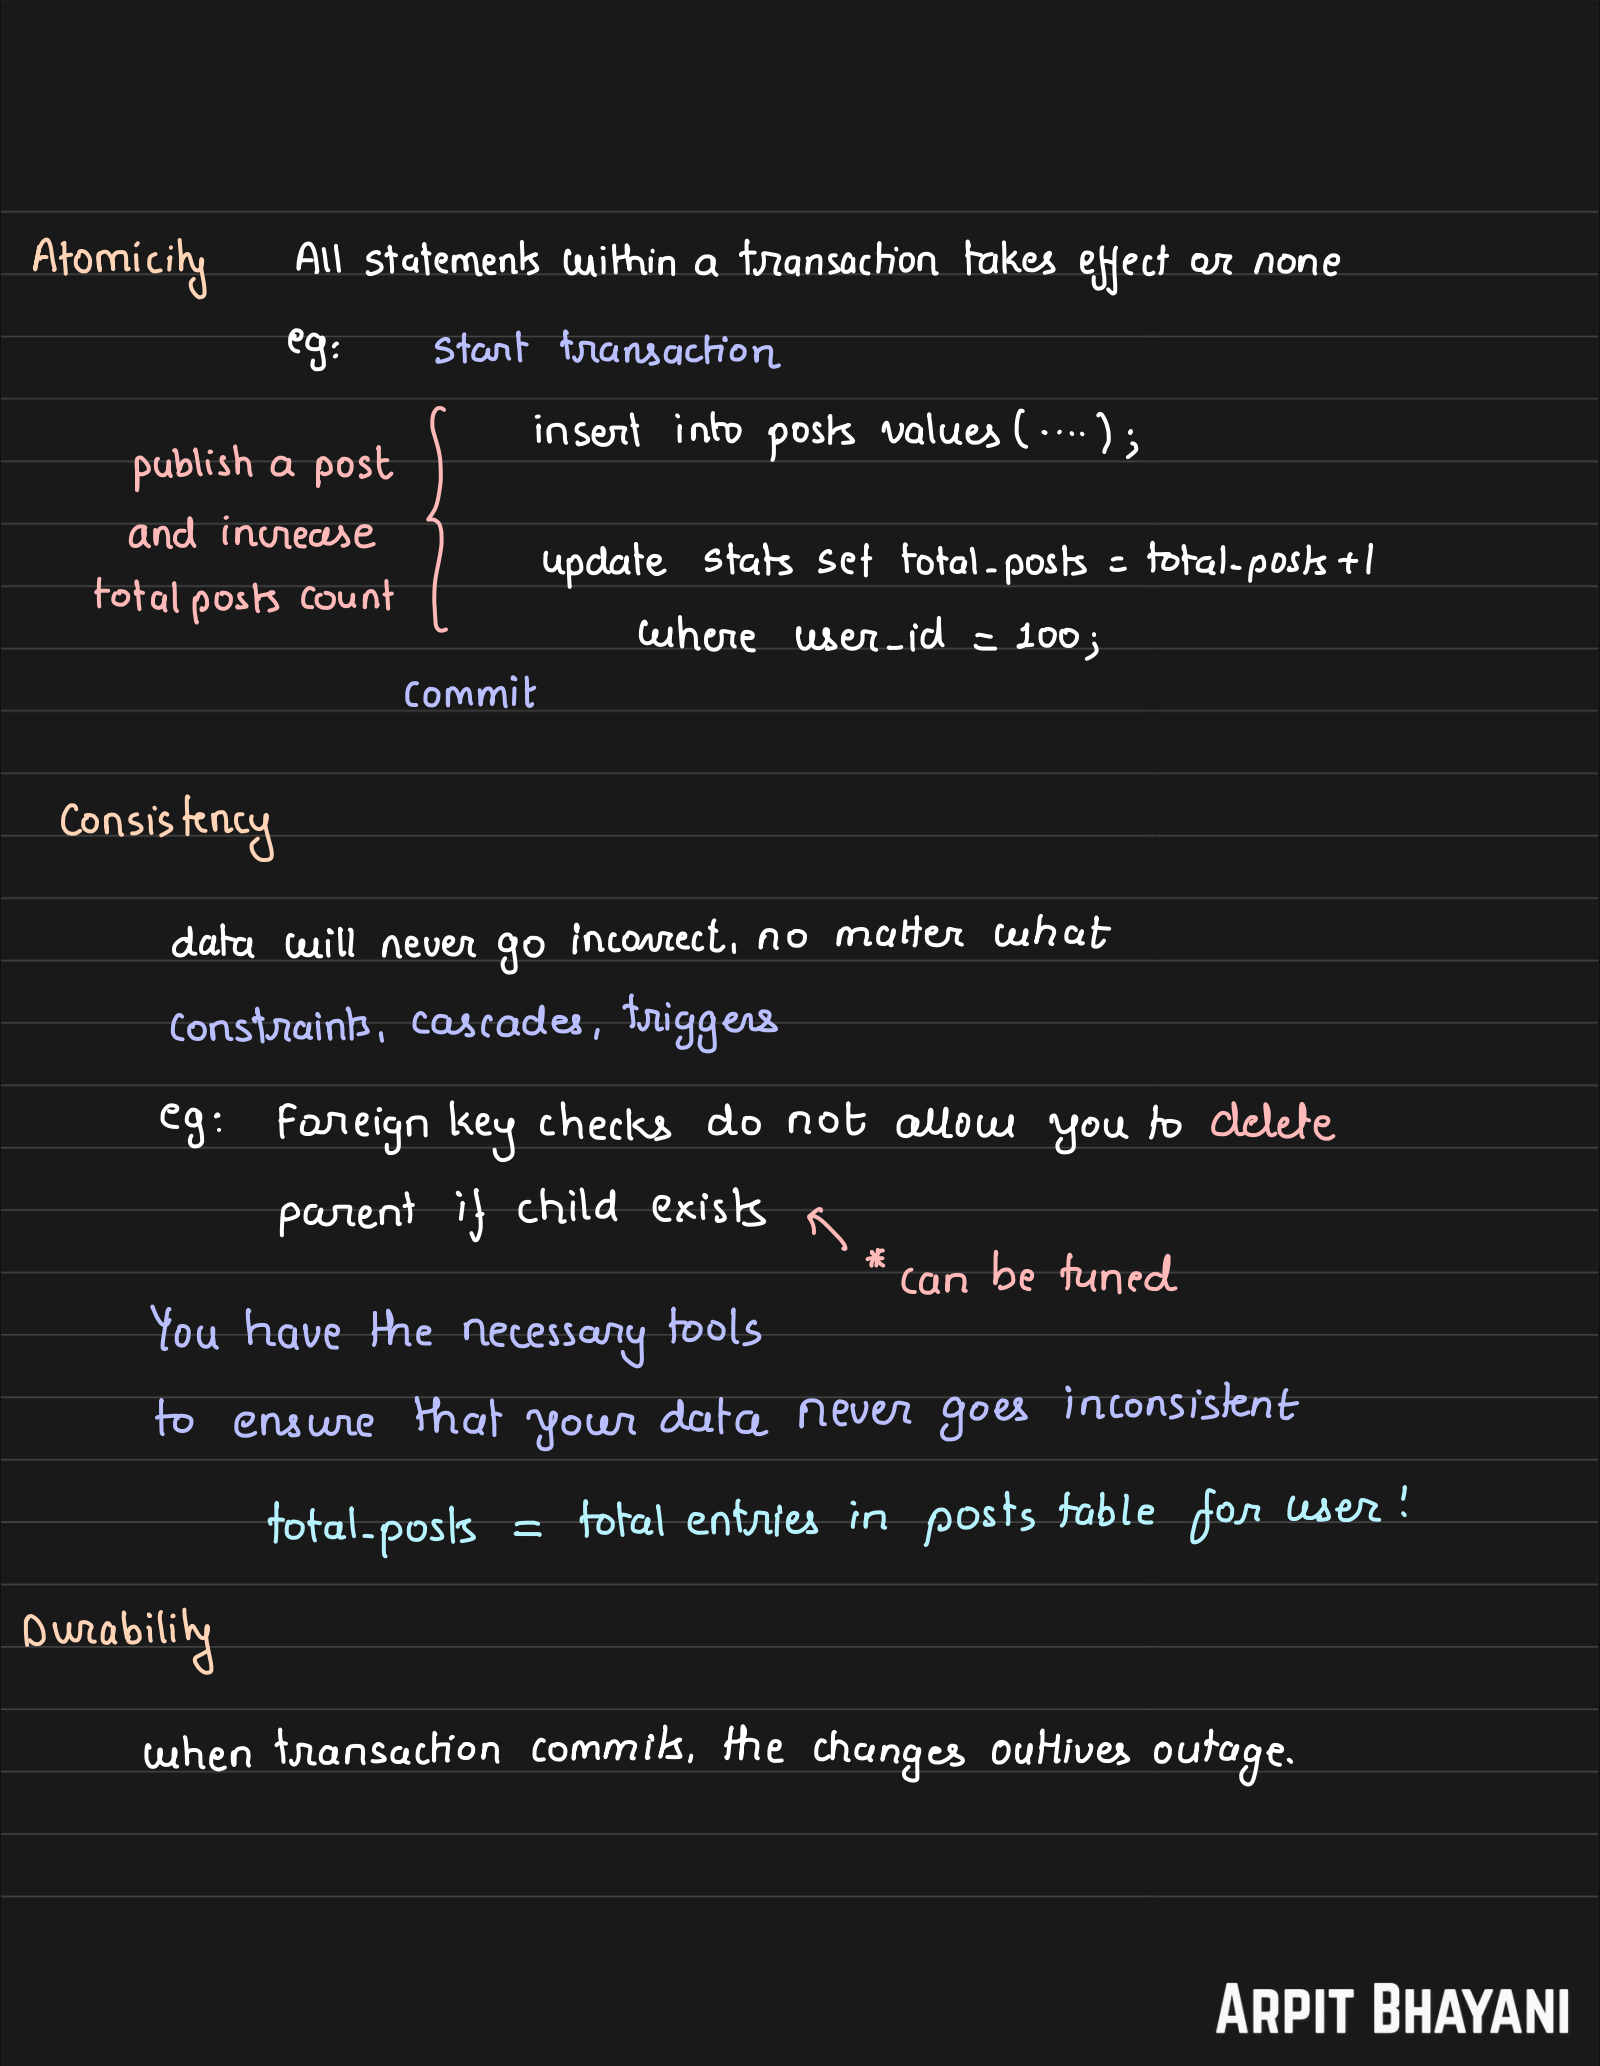 Atomicity All statements within a transaction takes effect or none
eg: start transaction
insert into posts values (....);
publish a post
and increase
total posts count
update stats set total_posts = total_posts + 1
where user_id = 100;
commit
Consistency
data will never go incorrect, no matter what
constraints, cascades, triggers
eg: Foreign key checks do not allow you to delete
parent if child exists
* can be tuned
You have the necessary tools
to ensure that your data never goes inconsistent
total_posts = total entries in posts table for user!
Durability
when transaction commits, the changes outlives outage.
ARPIT BHAYANI